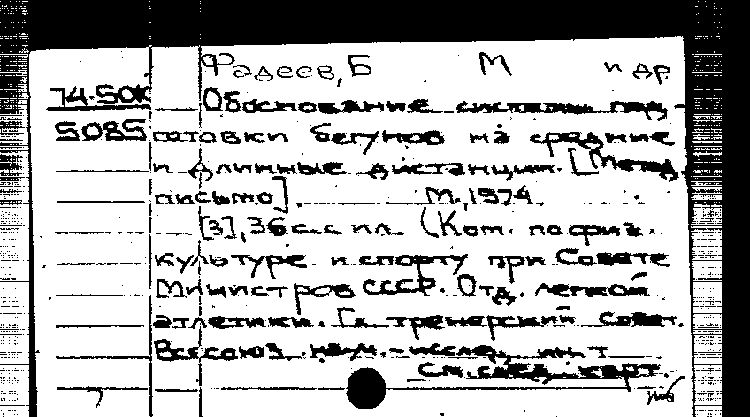 Фадеев, Б М и др.
74-50к Обоснование системы под-
5085 готовки бегунов на средние
и длинные дистанции. [Метод.
письмо]. М., 1974.
[3], 36 с. с ил. (Ком. по физ.
культуре и спорту при Совете
Министров СССР. Отд. легкой
атлетики. Гл. тренерский совет.
Всесоюз. науч.-исслед. ин-т
См. след. карт.